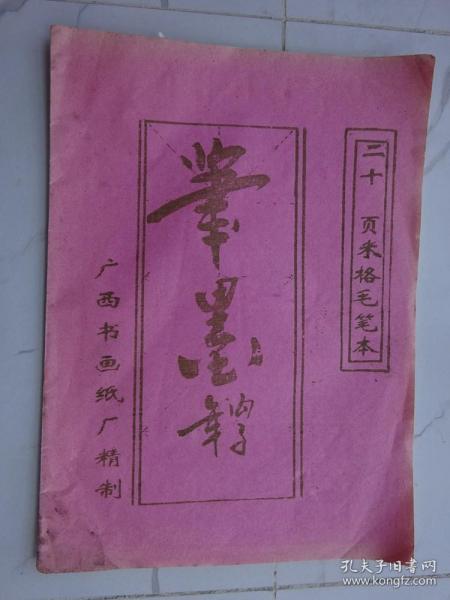 二十页米格毛笔本
筆墨
广西书画纸厂精制
孔夫子旧书网
www.kongfz.com